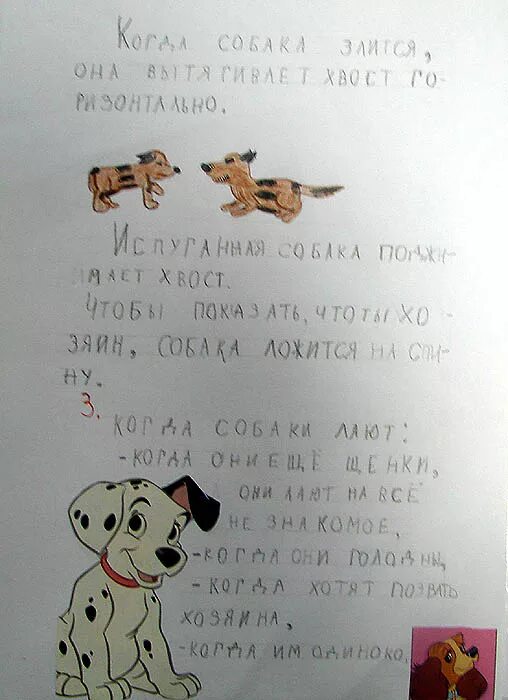 Когда собака злится,
она вытягивает хвост го-
ризонтально.
Испуганная собака поджи-
мает хвост.
Чтобы показать, что ты хо-
зяин, собака ложится на спи-
ну.
3.
Когда собаки лают:
- когда они ещё щенки,
они лают на всё
не знакомое,
- когда они голодны,
- когда хотят позвать
хозяина,
- когда им одиноко,